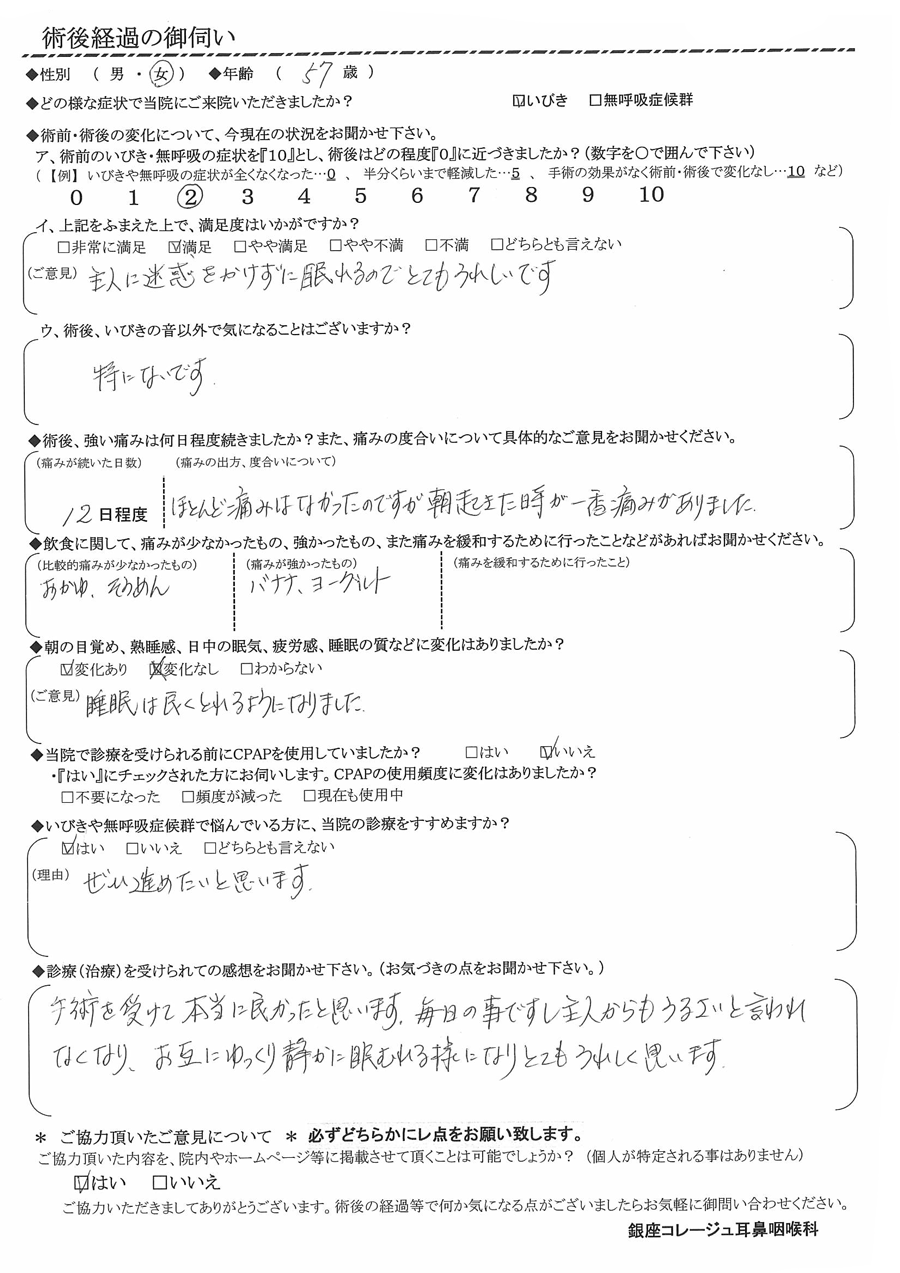 術後経過の御伺い
◆性別 （ 男 ・ 女 ） ◆年齢 （ 57 歳 ）
◆どの様な症状で当院にご来院いただきましたか？ ☑いびき □無呼吸症候群
◆術前・術後の変化について、今現在の状況をお聞かせ下さい。
ア、術前のいびき・無呼吸の症状を『10』とし、術後はどの程度『0』に近づきましたか？（数字を〇で囲んで下さい）
（【例】いびきや無呼吸の症状が全くなくなった…0 、 半分くらいまで軽減した…5 、 手術の効果がなく術前・術後で変化なし…10 など）
0 1 2 3 4 5 6 7 8 9 10
イ、上記をふまえた上で、満足度はいかがですか？
□非常に満足 ☑満足 □やや満足 □やや不満 □不満 □どちらとも言えない
（ご意見） 主人に迷惑をかけずに眠れるのでとてもうれしいです
ウ、術後、いびきの音以外で気になることはございますか？
特にないです.
◆術後、強い痛みは何日程度続きましたか？また、痛みの度合いについて具体的なご意見をお聞かせください。
（痛みが続いた日数） （痛みの出方、度合いについて）
12 日程度 ほとんど痛みはなかったのですが朝起きた時が一番痛みがありました.
◆飲食に関して、痛みが少なかったもの、強かったもの、また痛みを緩和するために行ったことなどがあればお聞かせください。
（比較的痛みが少なかったもの） （痛みが強かったもの） （痛みを緩和するために行ったこと）
おかゆ、そうめん バナナ、ヨーグルト
◆朝の目覚め、熟睡感、日中の眠気、疲労感、睡眠の質などに変化はありましたか？
☑変化あり ☒変化なし □わからない
（ご意見） 睡眠は良くとれるようになりました.
◆当院で診療を受けられる前にCPAPを使用していましたか？ □はい ☑いいえ
・『はい』にチェックされた方にお伺いします。CPAPの使用頻度に変化はありましたか？
□不要になった □頻度が減った □現在も使用中
◆いびきや無呼吸症候群で悩んでいる方に、当院の診療をすすめますか？
☑はい □いいえ □どちらとも言えない
（理由） ぜひ進めたいと思います.
◆診療（治療）を受けられての感想をお聞かせ下さい。（お気づきの点をお聞かせ下さい。）
手術を受けて本当に良かったと思います. 毎日の事ですし主人からもうるさいと言われ
なくなり、お互にゆっくり静かに眠むれる様になりとてもうれしく思います.
＊ ご協力頂いたご意見について ＊ 必ずどちらかにレ点をお願い致します。
ご協力頂いた内容を、院内やホームページ等に掲載させて頂くことは可能でしょうか？（個人が特定される事はありません）
☑はい □いいえ
ご協力いただきましてありがとうございます。術後の経過等で何か気になる点がございましたらお気軽に御問い合わせください。
銀座コレージュ耳鼻咽喉科